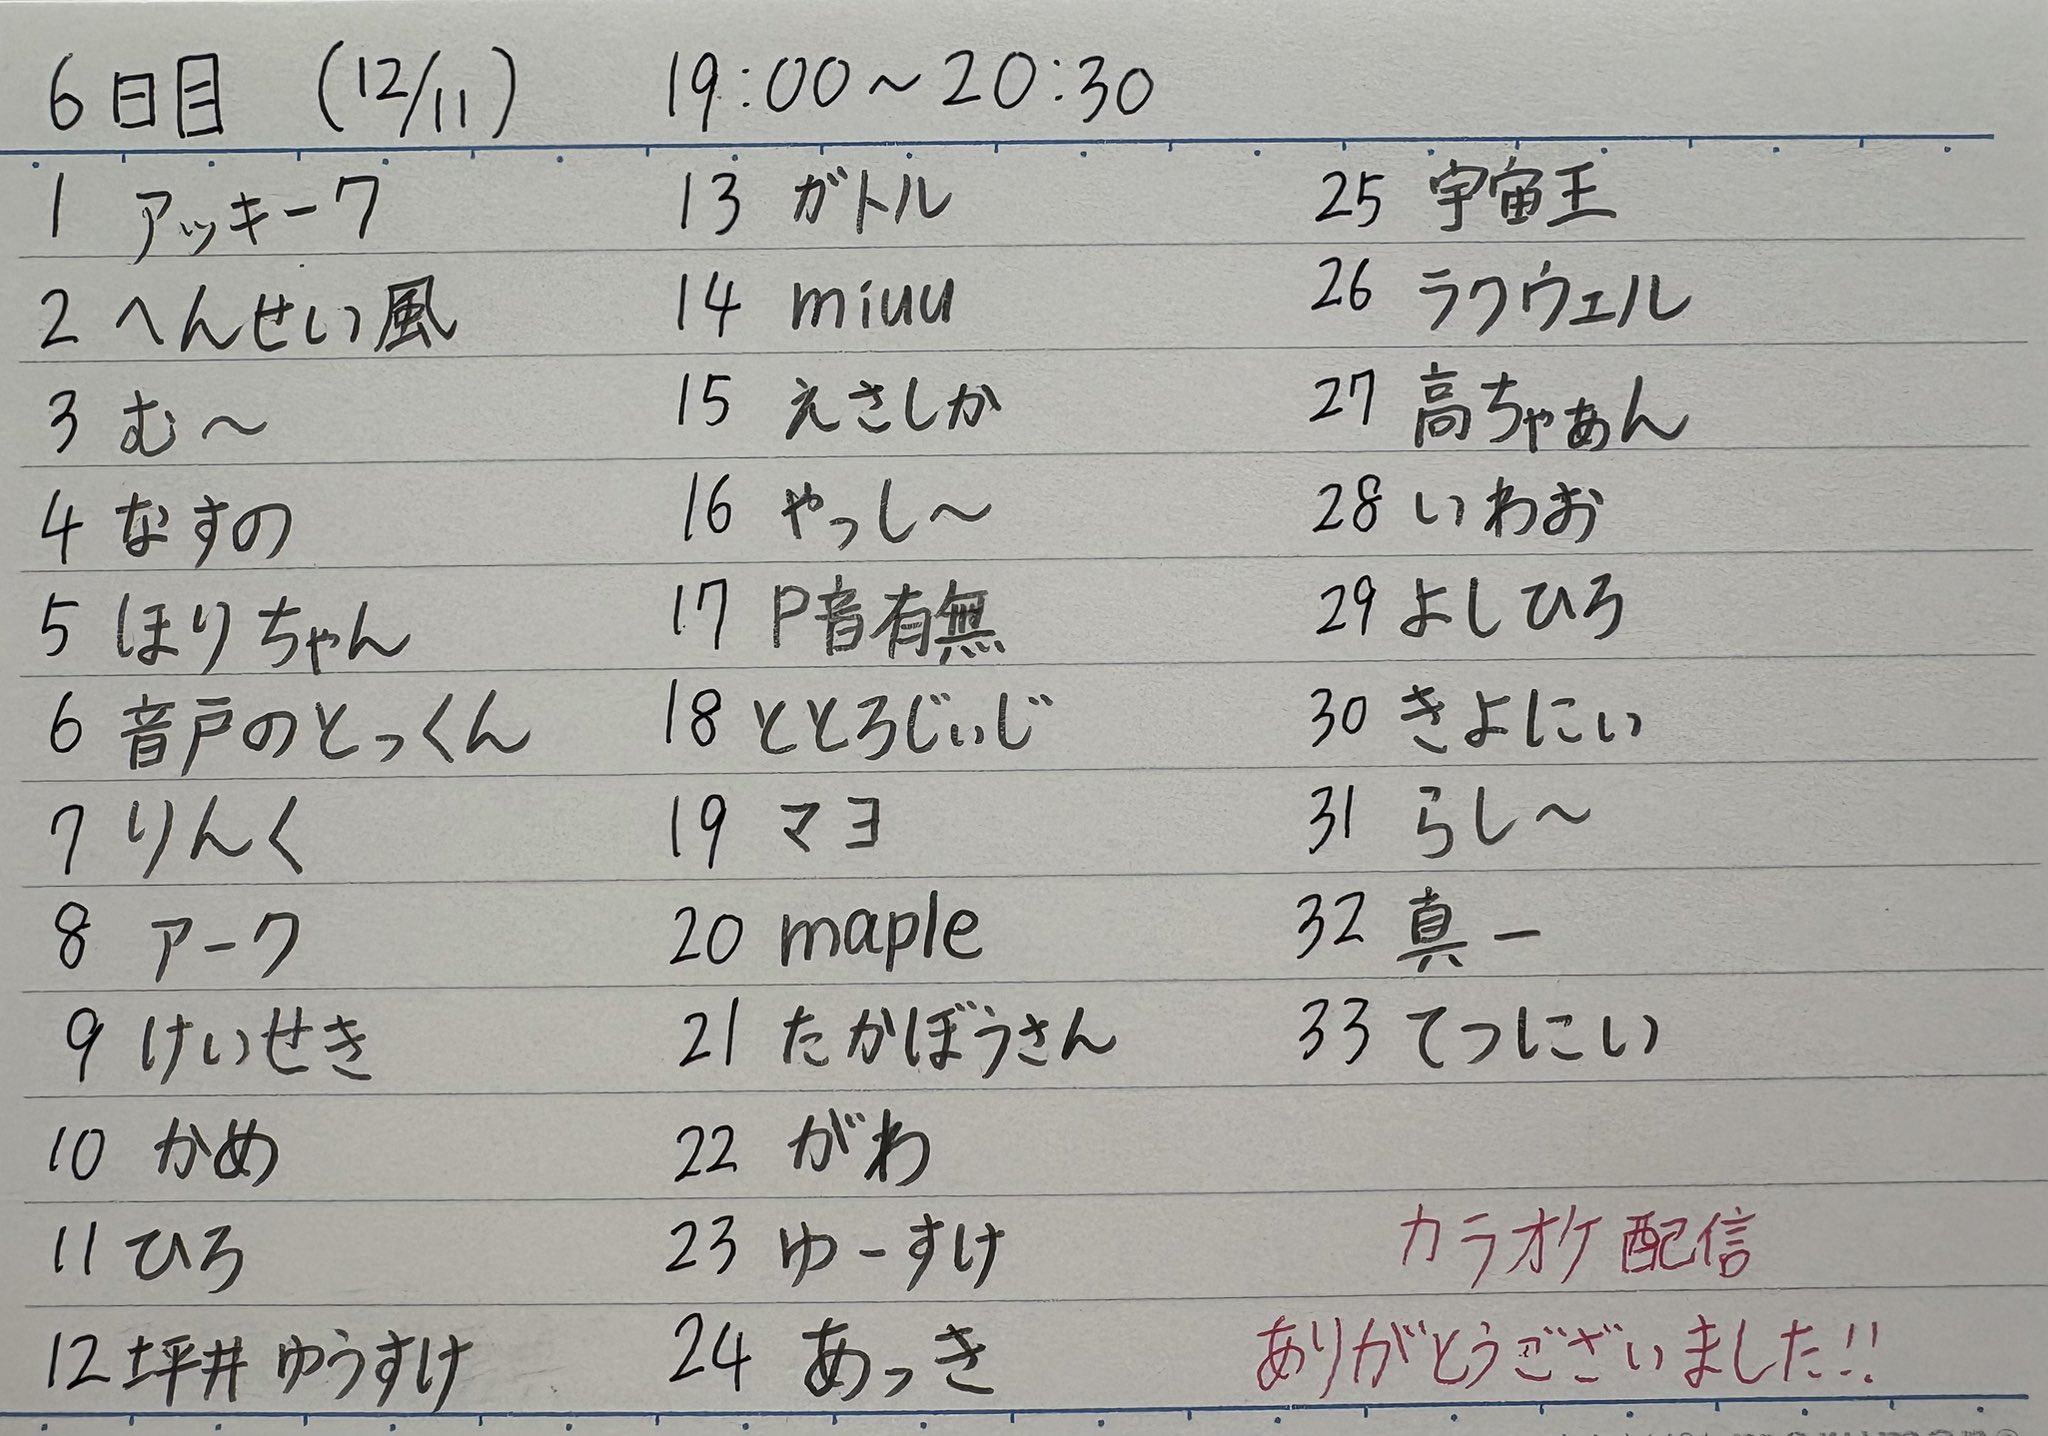 6日目 (12/11) 19:00～20:30
1 アッキーク
2 へんせい風
3 む～
4 なすの
5 ほりちゃん
6 音戸のとっくん
7 りんく
8 アーク
9 けいせき
10 かめ
11 ひろ
12 坪井ゆうすけ
13 ガトル
14 miuu
15 えさしか
16 やっし～
17 P音有無
18 ととろじぃじ
19 マヨ
20 maple
21 たかぼうさん
22 がわ
23 ゆーすけ
24 あっき
25 宇宙王
26 ラクウェル
27 高ちゃぁん
28 いわお
29 よしひろ
30 きよにぃ
31 らし～
32 真一
33 てつにい
カラオケ配信
ありがとうございました!!